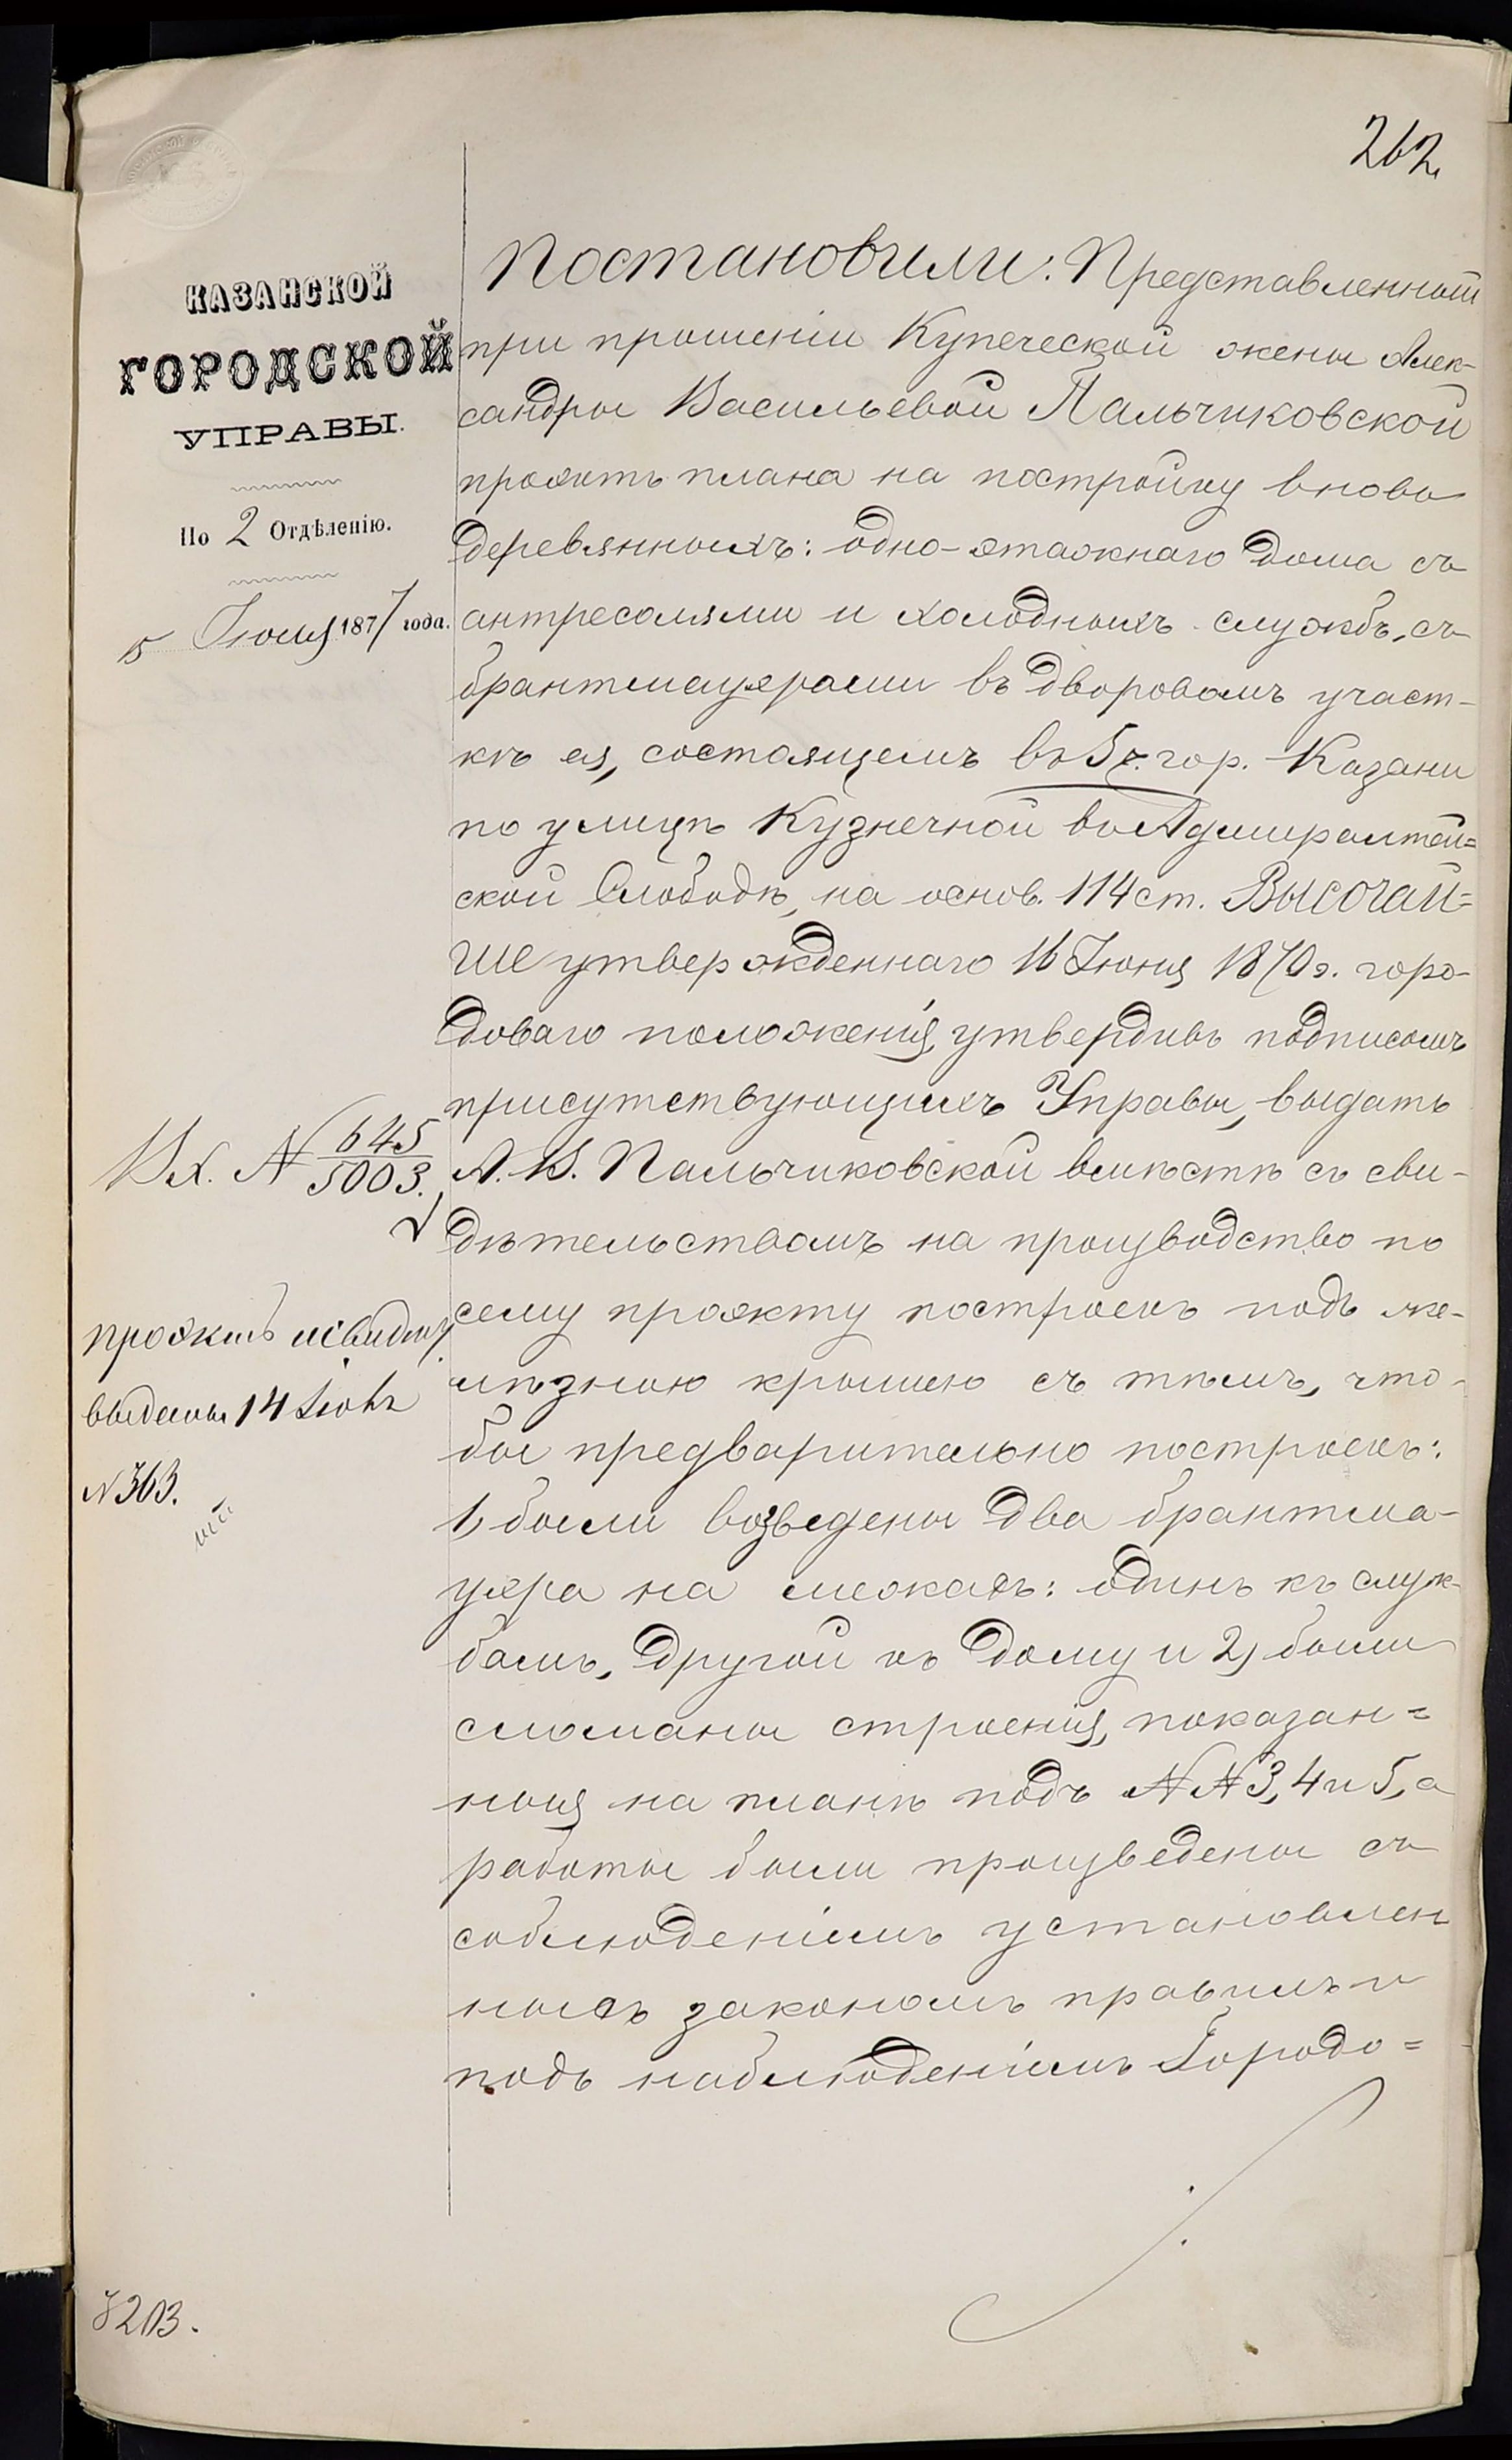 262
КАЗАНСКОЙ
ГОРОДСКОЙ
УПРАВЫ.
По 2 Отдѣленію.
1877 года.
Постановили: Представленный
при прошеніи Купеческой жены Алек-
сандры Васильевой Пальчиковской
проэктъ плана на постройку вновь
деревянныхъ: одно-этажнаго дома съ
антресолями и холодныхъ службъ, съ
брантмауэрами въ дворовомъ участ-
кѣ ея, состоящемъ въ 5 ч. гор. Казани
по улицѣ Кузнечной въ Адмиралтей=
ской Слободѣ, на основ. 114 ст. Высочай=
ше утвержденнаго 16 Іюня 1870 г. горо-
доваго положенія, утвердивъ подписомъ
присутствующихъ Управы, выдать
А. В. Пальчиковской вмѣстѣ съ сви-
дѣтельствомъ на производство по
сему проэкту построекъ подъ же-
лѣзною крышею съ тѣмъ, что-
бы предварительно построекъ:
1, были возведены два брантма-
уэра на межахъ: одинъ къ служ-
бамъ, другой къ дому и 2) были
сломаны строенія, показан=
ныя на планѣ подъ №№ 3, 4 и 5, а
работы были произведены съ
соблюденіемъ установлен
ныхъ закономъ правилъ и
подъ наблюденіемъ Городо=
Вх. № 645
5003.
проэктъ и свидѣт.
выданы 14
№ 363.